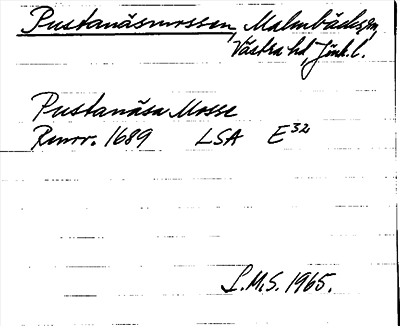 Pustanäsmossen, Malmbäcks sn,
Västra hd, Jönk. l.
Pustanäsa Mosse
Renov. 1689 LSA E32
I.M.S. 1965.